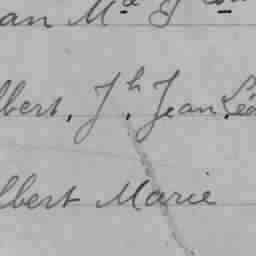 an Md J
lbert, Jh, Jean Léo
lbert Marie